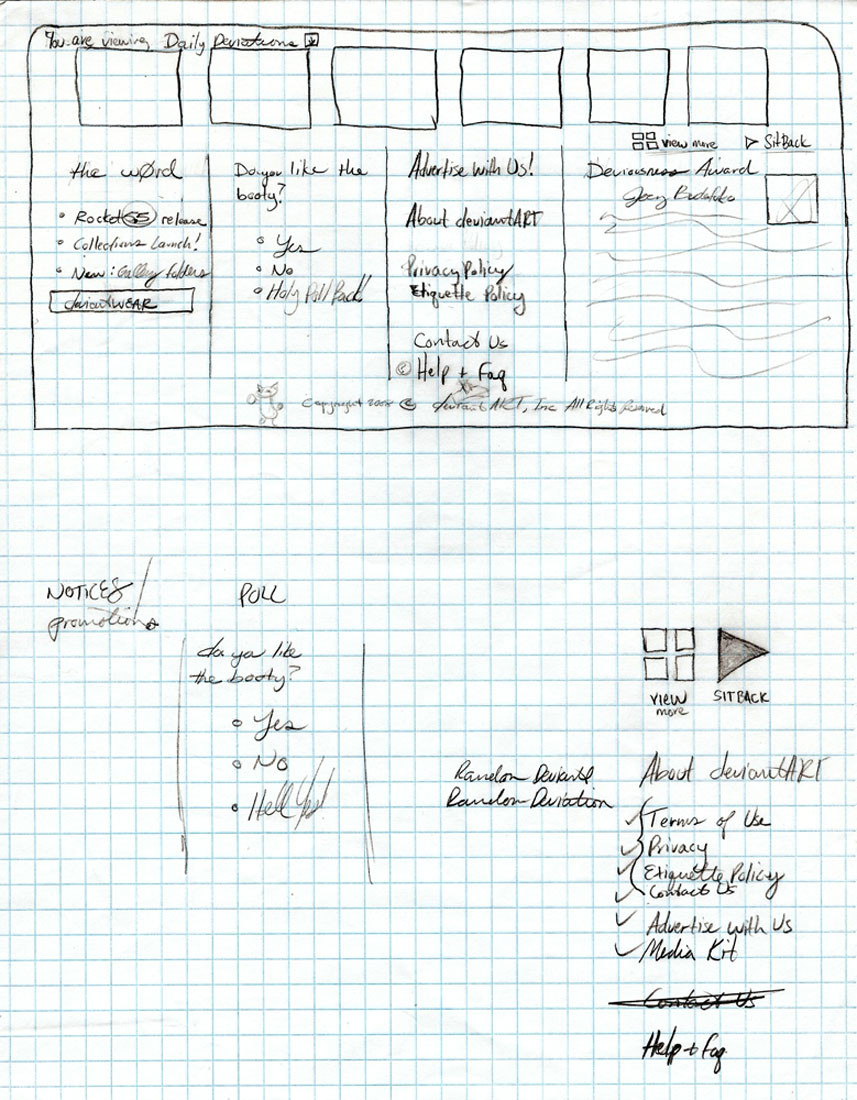 You are viewing Daily Deviations
view more
SitBack
the wørd
Rocket 55 release
Collections Launch!
New: Gallery folders
deviantWEAR
Do you like the
booty?
Yes
No
Holy Poll Back!
Advertise with Us!
About deviantART
Privacy Policy
Etiquette Policy
Contact Us
Help + Faq
Deviousness Award
Copyright 2008 © deviantART, Inc All Rights Reserved
NOTICES/
promotions
POLL
do you like
the booty?
Yes
No
Hell Yes!
VIEW
more
SITBACK
Random Deviant
Random Deviation
About deviantART
Terms of Use
Privacy
Etiquette Policy
Contact Us
Advertise with Us
Media Kit
Contact Us
Help + Faq